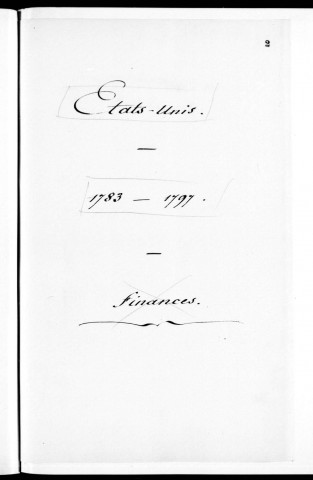 2
Etats-Unis.
—
1783 — 1797.
—
Finances.